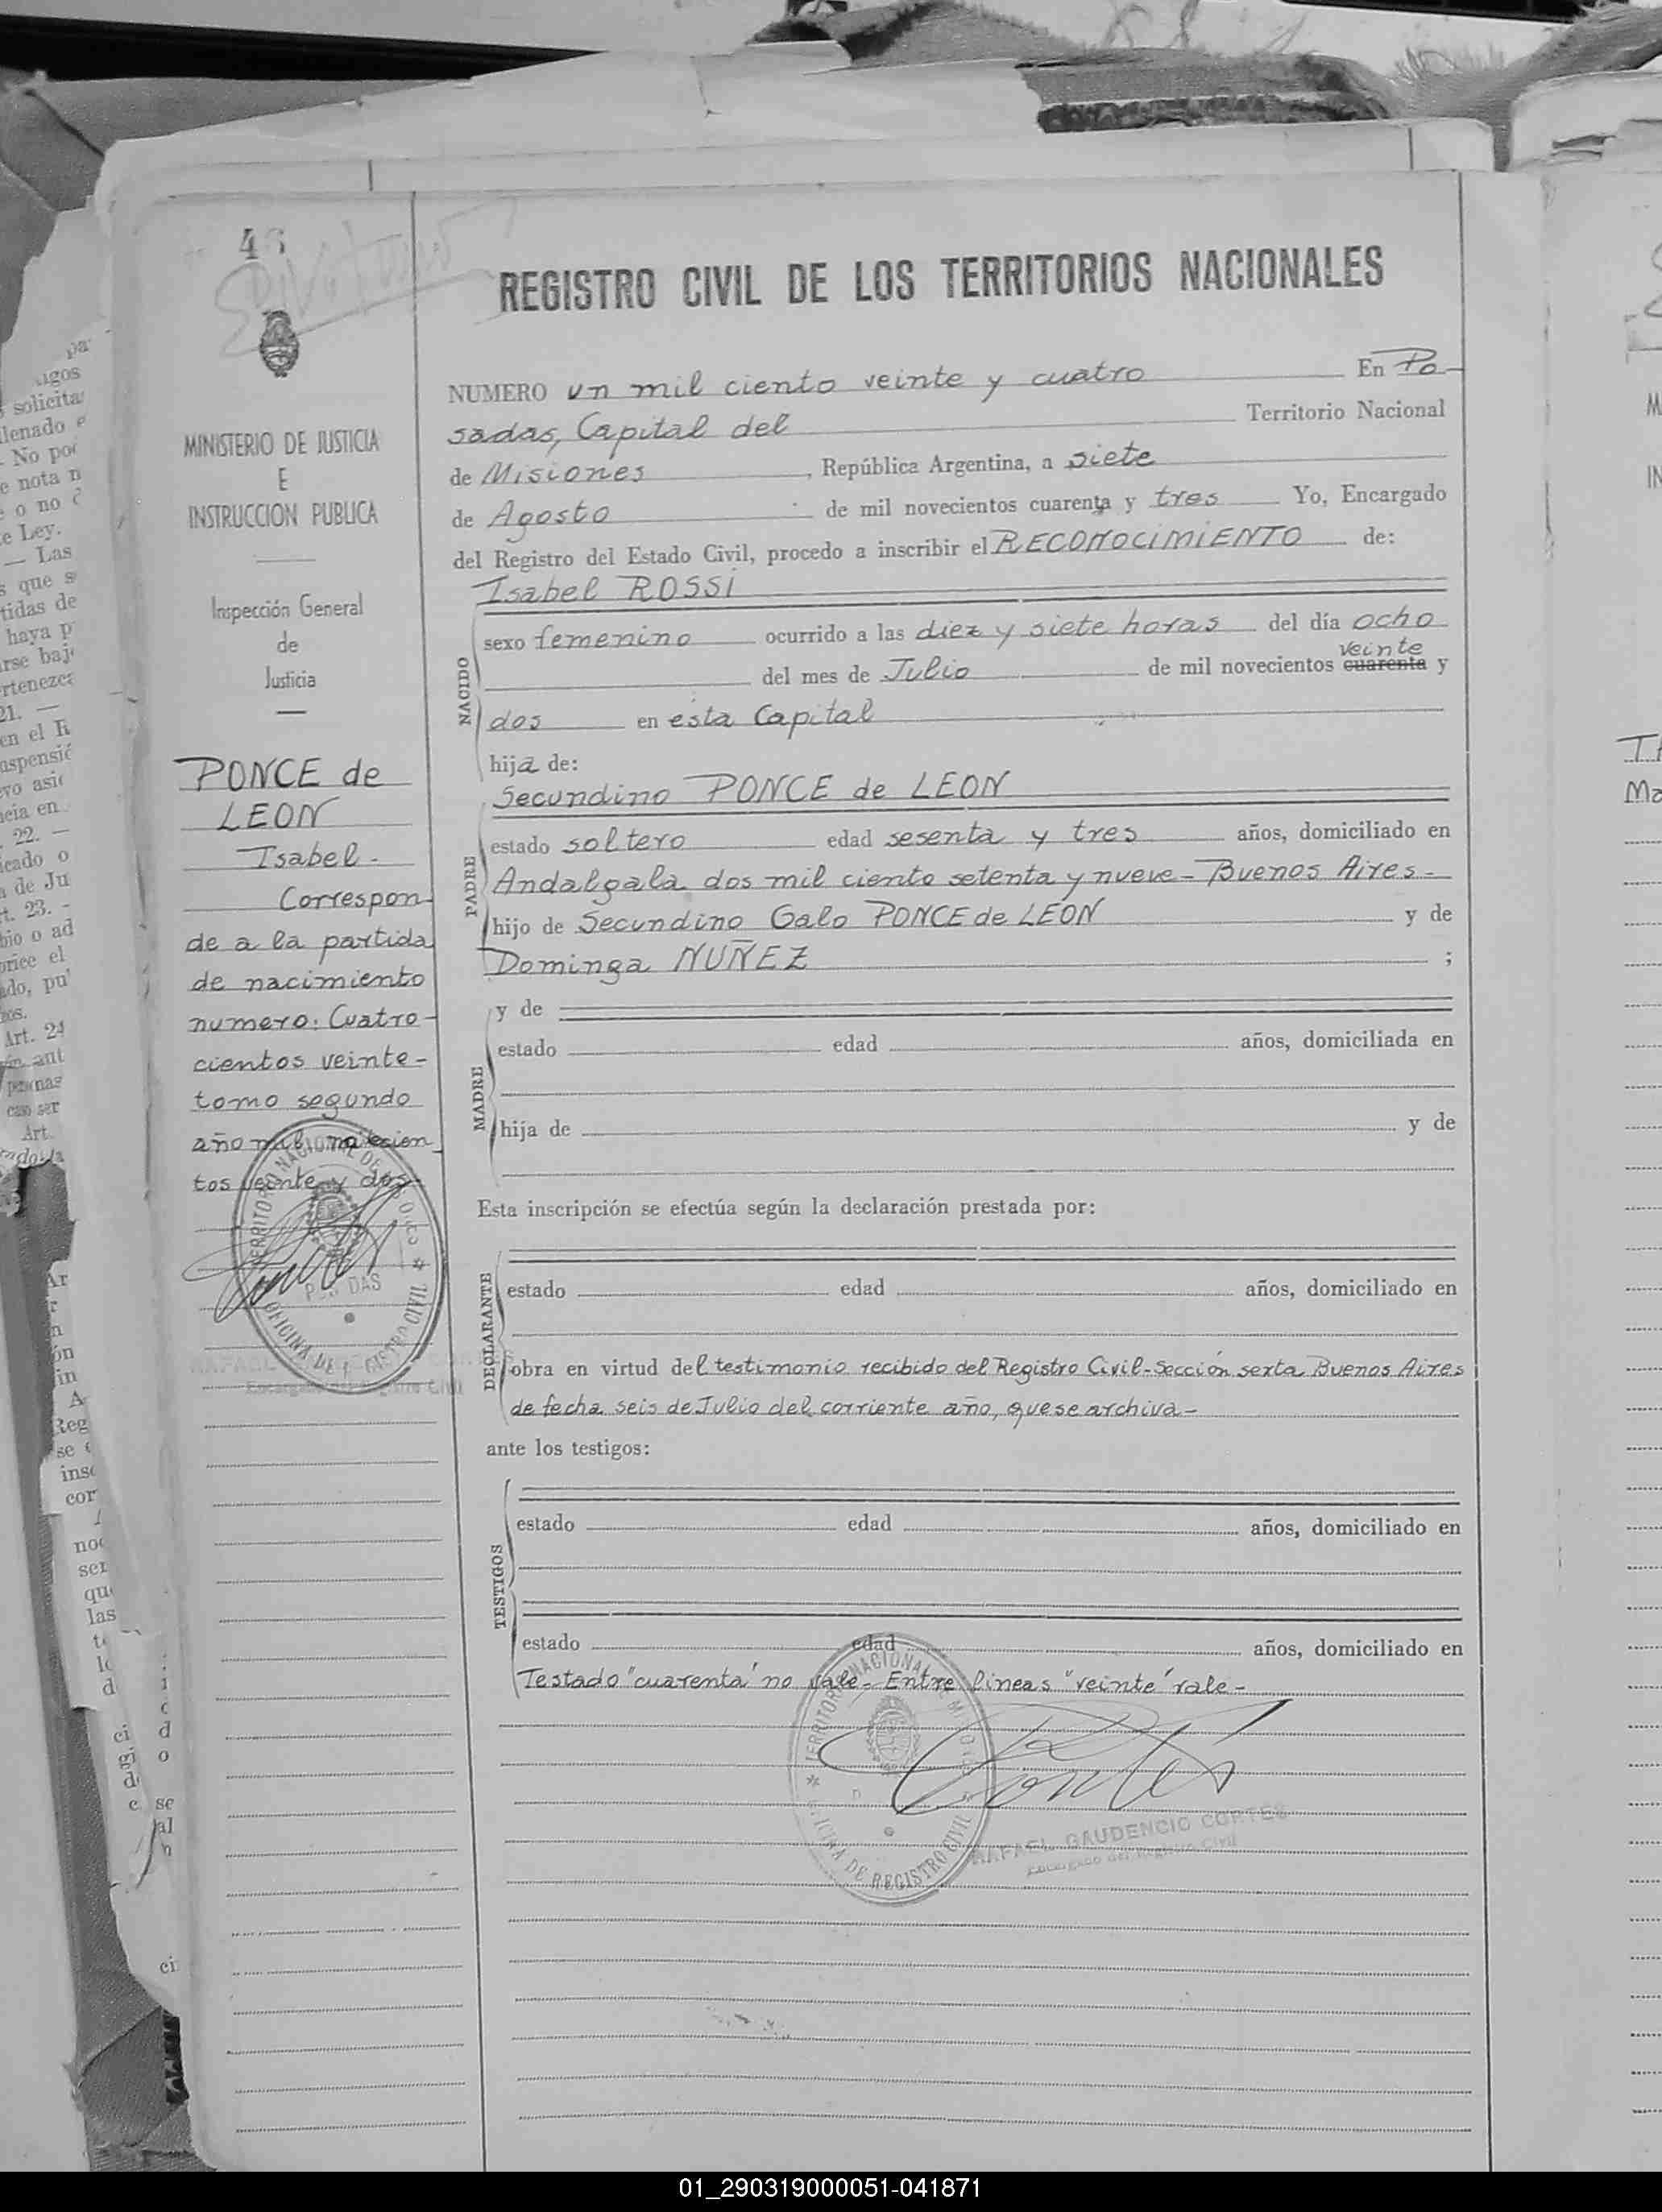 46
REGISTRO CIVIL DE LOS TERRITORIOS NACIONALES
MINISTERIO DE JUSTICIA
E
INSTRUCCION PUBLICA
Inspección General
de
Justicia
PONCE de
LEON
Isabel-
Correspon-
de a la partida
de nacimiento
numero: Cuatro-
cientos veinte-
tomo segundo
año mil novecien
tos veinte y dos-
NUMERO un mil ciento veinte y cuatro En Po-
sadas, Capital del Territorio Nacional
de Misiones, República Argentina, a siete
de Agosto de mil novecientos cuarenta y tres Yo, Encargado
del Registro del Estado Civil, procedo a inscribir el RECONOCIMIENTO de:
Isabel ROSSI
NACIDO
sexo femenino ocurrido a las diez y siete horas del día ocho
veinte
del mes de Julio de mil novecientos cuarenta y
dos en esta Capital
hija de:
Secundino PONCE de LEON
PADRE
estado soltero edad sesenta y tres años, domiciliado en
Andalgala dos mil ciento setenta y nueve - Buenos Aires-
hijo de Secundino Galo PONCE de LEON y de
Dominga NUÑEZ ;
y de
MADRE
estado edad años, domiciliada en
hija de y de
Esta inscripción se efectúa según la declaración prestada por:
DECLARANTE
estado edad años, domiciliado en
obra en virtud del testimonio recibido del Registro Civil-Sección sexta Buenos Aires
de fecha seis de Julio del corriente año, que se archiva-
ante los testigos:
TESTIGOS
estado edad años, domiciliado en
estado edad años, domiciliado en
Testado "cuarenta" no vale- Entre lineas "veinte" vale-
TERRITORIO NACIONAL DE MISIONES
OFICINA DE REGISTRO CIVIL
RAFAEL GAUDENCIO CORTES
Encargado del Registro Civil
01_290319000051-041871